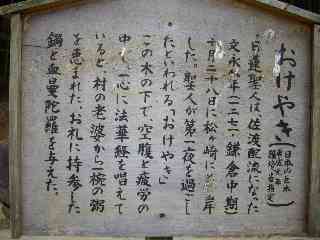 おけやき
日本山巨木
日蓮聖人は佐渡配流になった
文永八年(一二七一・鎌倉中期)
十月二十八日に松ヶ崎に着岸
した。聖人が第一夜を過ごし
たといわれる「おけやき」
この木の下で、空腹と疲労の
中で、一心に法華経を唱えて
いると、村の老婆から一椀の粥
を恵まれた。お礼に持参した
鍋と血曼陀羅を与えた。